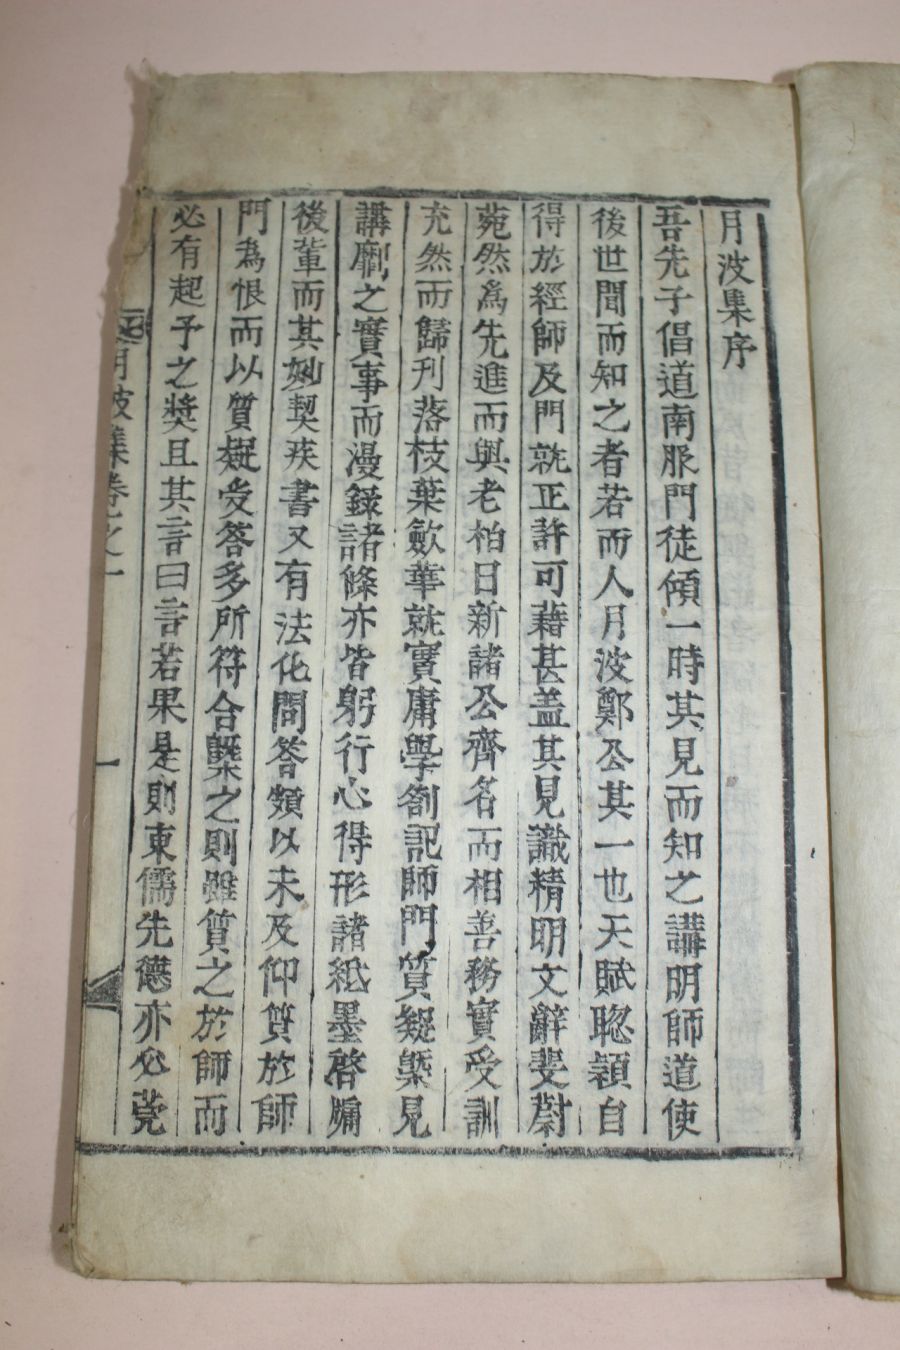 月波集序
吾先子倡道南服門徒傾一時其見而知之講明師道使
後世聞而知之者若而人月波鄭公其一也天賦聦穎自
得於經師及門就正許可藉甚盖其見識精明文辭斐蔚
菀然爲先進而與老柏日新諸公齊名而相善務實受訓
充然而歸刊落枝葉歛華就實庸學劄記師門質疑槩見
講劘之實事而漫錄諸條亦皆躬行心得形諸紙墨啓牖
後輩而其妙契疾書又有法化問答頻以未及仰質於師
門爲恨而以質疑受答多所符合槩之則雖質之於師而
必有起予之奬且其言曰言若果是則東儒先德亦必莞
月波集卷之一
一